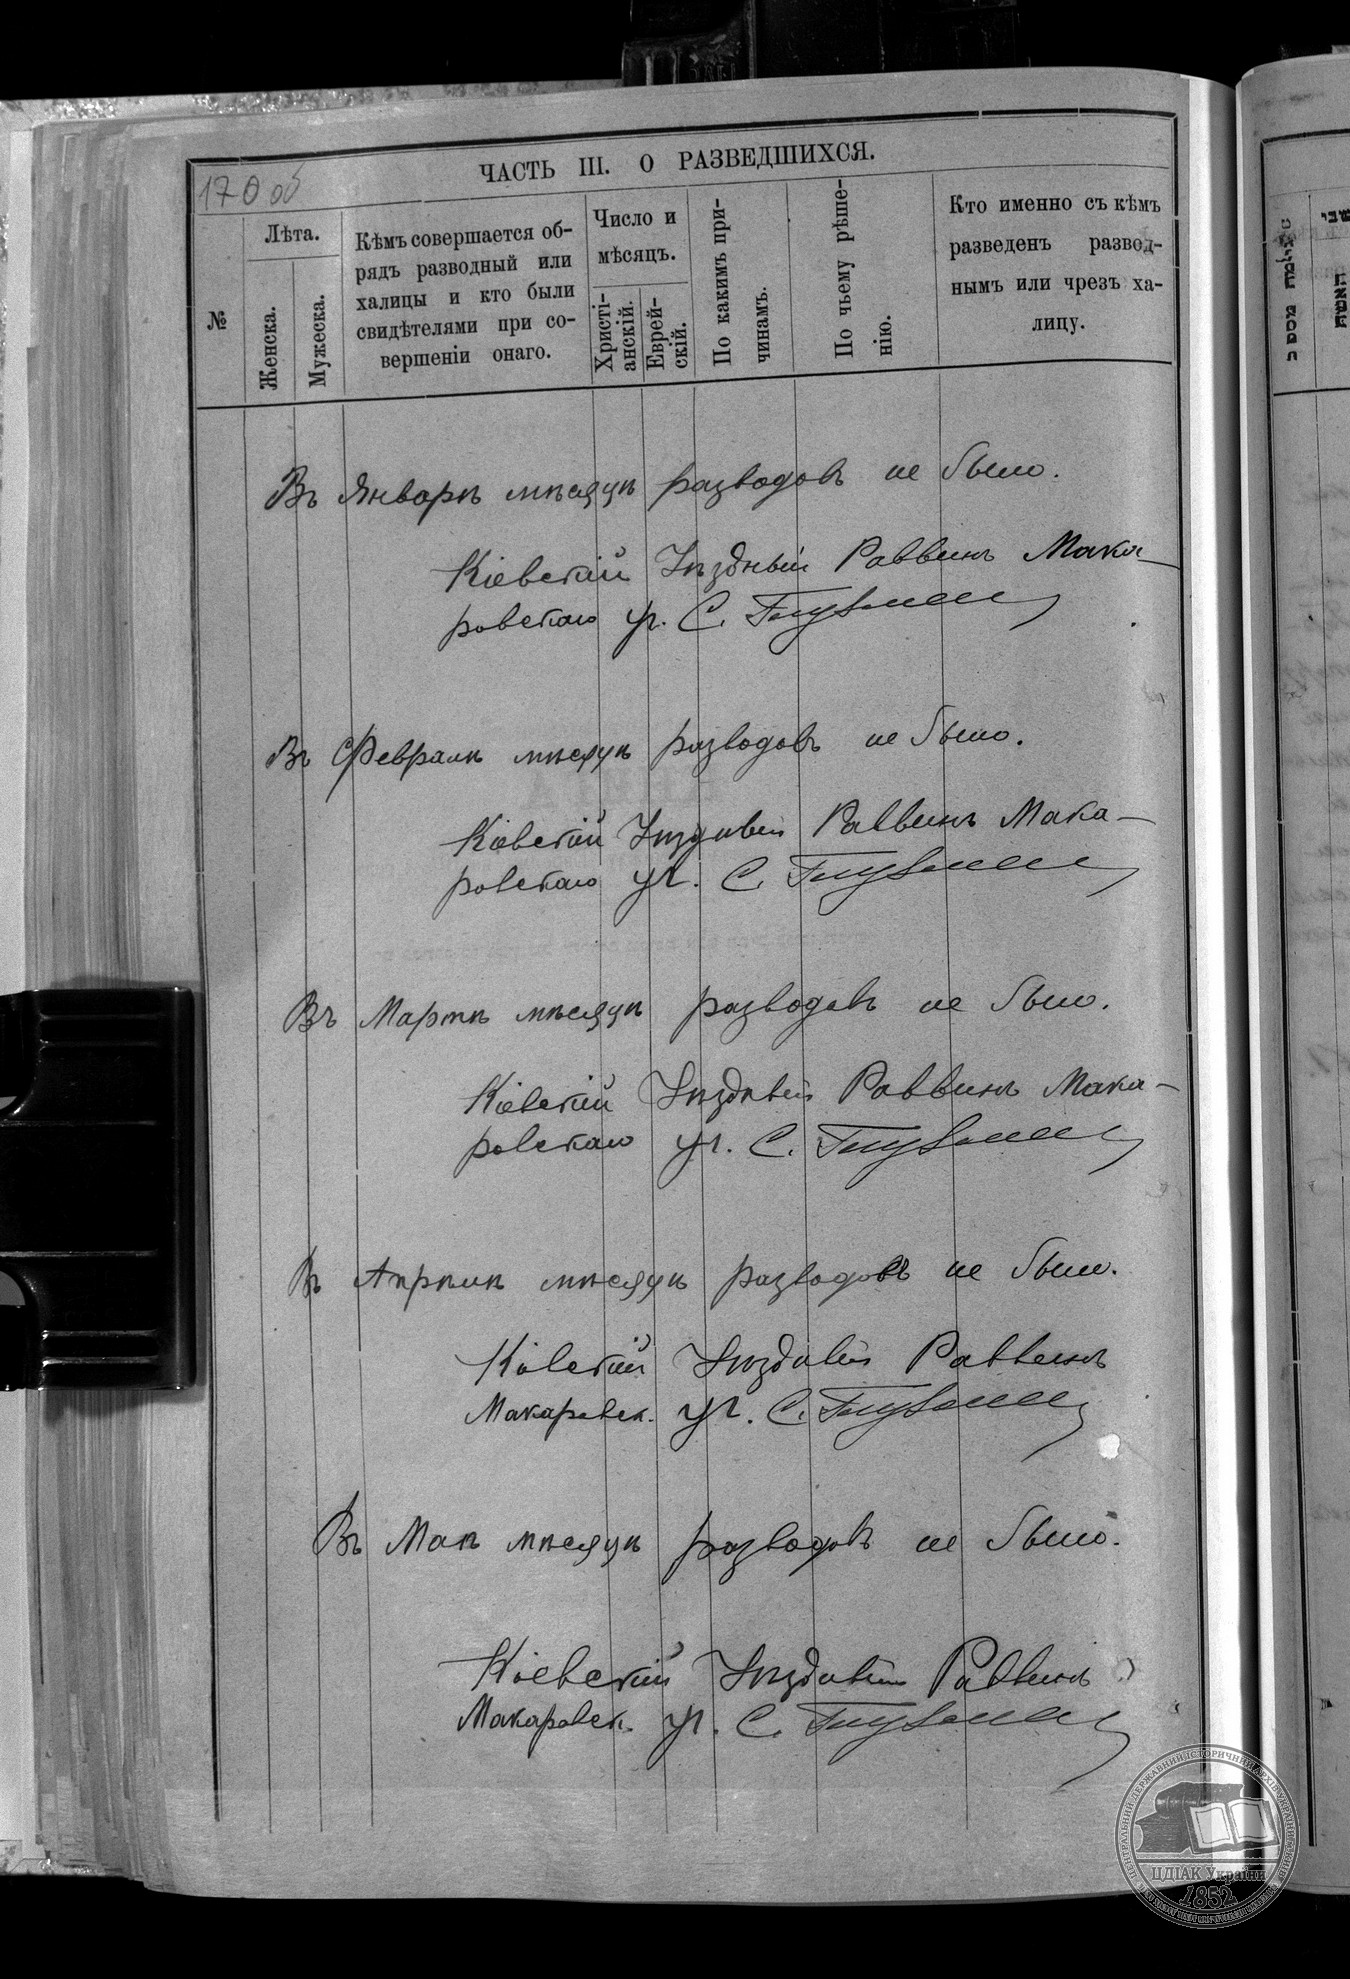 170 об
ЧАСТЬ III. О РАЗВЕДШИХСЯ.
№
Лѣта.
Женска.
Мужеска.
Кѣмъ совершается об-
рядъ разводный или
халицы и кто были
свидѣтелями при со-
вершеніи онаго.
Число и
мѣсяцъ.
Христі-
анскій.
Еврей-
скій.
По какимъ при-
чинамъ.
По чьему рѣше-
нію.
Кто именно съ кѣмъ
разведенъ развод-
нымъ или чрезъ ха-
лицу.
Въ Январѣ мѣсяцѣ разводовъ не было.
Кіевскій Уѣздный Раввинъ Мака-
ровскаго уч. С. Глузман
Въ Февралѣ мѣсяцѣ разводовъ не было.
Кіевскій Уѣздный Раввинъ Мака-
ровскаго уч. С. Глузман
Въ Мартѣ мѣсяцѣ разводовъ не было.
Кіевскій Уѣздный Раввинъ Мака-
ровскаго уч. С. Глузман
Въ Апрѣлѣ мѣсяцѣ разводовъ не было.
Кіевскій Уѣздный Раввинъ
Макаровск. уч. С. Глузман
Въ Маѣ мѣсяцѣ разводовъ не было.
Кіевскій Уѣздный Раввинъ
Макаровск. уч. С. Глузман
האשה
ЦЕНТРАЛЬНИЙ ДЕРЖАВНИЙ ІСТОРИЧНИЙ АРХІВ УКРАЇНИ
ЦДІАК України
1852